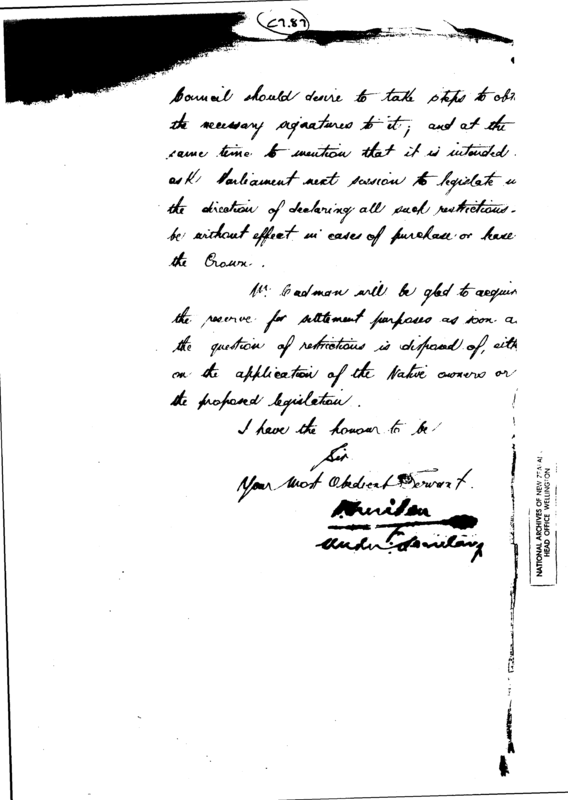 C7.87
Council should desire to take steps to ob
the necessary signatures to it; and at the
same time to mention that it is intended
ask Parliament next session to legislate
the direction of declaring all such restrictions
be without effect in cases of purchase or lease
the Crown.
Mr. Cadman will be glad to acquir
the reserve for settlement purposes as soon a
the question of restrictions is disposed of, eith
on the application of the Native owners or
the proposed legislation.
I have the honour to be
Sir
Your Most Obedient Servant.
Under Secretary
NATIONAL ARCHIVES OF NEW ZEAL
HEAD OFFICE WELLINGTON